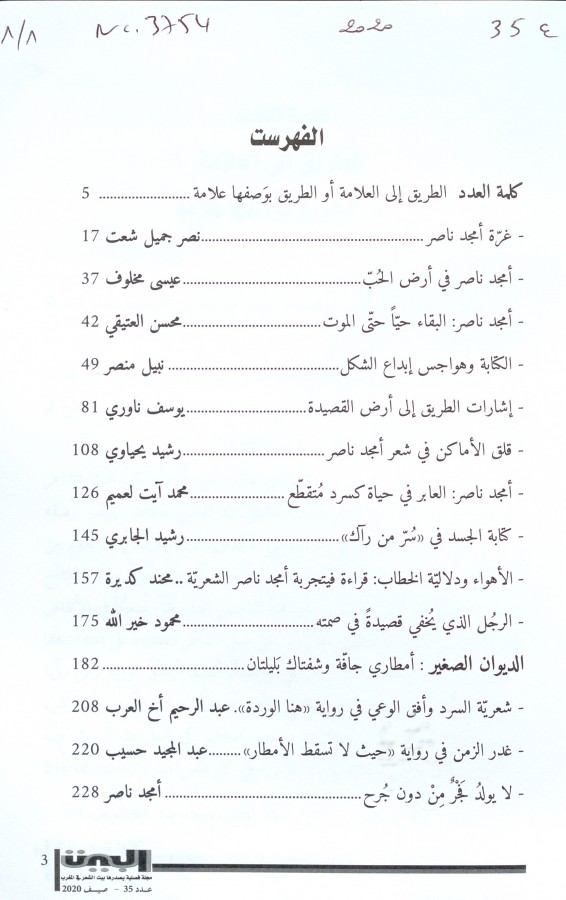 ٨/٨ Nc.3754 2020 35 ع
الفهرست
كلمة العدد الطريق إلى العلامة أو الطريق بوَصفها علامة ........................ 5
- غرّة أمجد ناصر........................................................نصر جميل شعت 17
- أمجد ناصر في أرض الحُبّ.............................................عيسى مخلوف 37
- أمجد ناصر: البقاء حيّاً حتّى الموت...................................محسن العتيقي 42
- الكتابة وهواجس إبداع الشكل........................................... نبيل منصر 49
- إشارات الطريق إلى أرض القصيدة.....................................يوسف ناوري 81
- قلق الأماكن في شعر أمجد ناصر.....................................رشيد يحياوي 108
- أمجد ناصر: العابر في حياة كسرد مُتقطّع ........................محمد آيت لعميم 126
- كتابة الجسد في «سُرّ من رآك»......................................رشيد الجابري 145
- الأهواء ودلاليّة الخطاب: قراءة فيتجربة أمجد ناصر الشعريّة ..محند كديرة 157
- الرجُل الذي يُخفي قصيدةً في صمته .................................محمود خير الله 175
الديوان الصغير : أمطاري جافّة وشفتاك بَليلتان .................................... 182
- شعريّة السرد وأفق الوعي في رواية «هنا الوردة». عبد الرحيم أخ العرب 208
- غدر الزمن في رواية «حيث لا تسقط الأمطار».........عبد المجيد حسيب 220
- لا يولدُ فَجْرٌ مِنْ دون جُرح .................................................أمجد ناصر 228
البيت 3
مجلة فصلية يصدرها بيت الشعر في المغرب
عدد 35 - صيف 2020